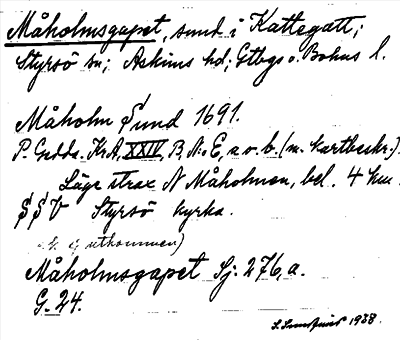 Måholmsgapet, sund i Kattegatt;
Styrsö sn; Askims hd; Gtbgs o. Bohus l.
Måholm Sund 1691.
P. Gedda. KrA, XXIV, B, N:o E, a o. b. (m. kartbeskr.).
Läge strax N Måholmen, bel. 4 km
SSV Styrsö kyrka.
utkommen)
Måholmsgapet Sj: 276, a.
G. 24.
1938.